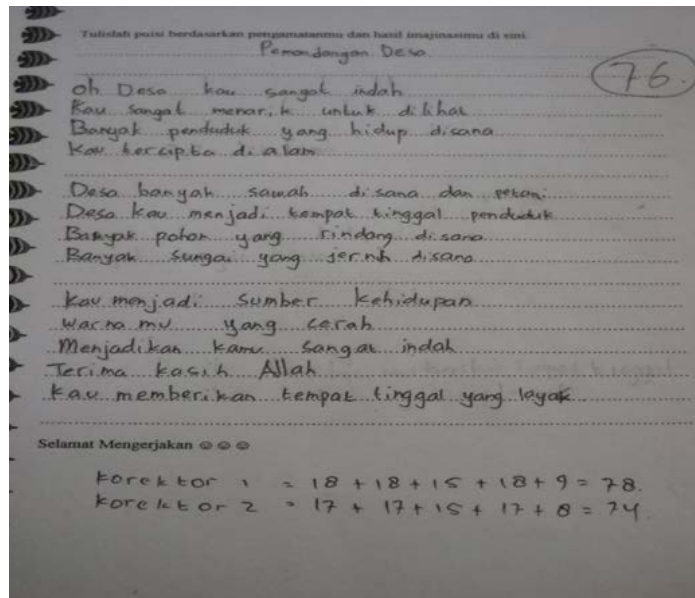 Tulislah puisi berdasarkan pengamatanmu dan hasil imajinasimu di sini.
Pemandangan Desa
76.
oh Desa kau sangat indah
Kau sangat menarik untuk dilihat
Banyak penduduk yang hidup disana
Kau tercipta di alam
Desa banyak sawah disana dan petani
Desa kau menjadi tempat tinggal penduduk
Banyak pohon yang rindang disana
Banyak sungai yang jernih disana
Kau menjadi sumber kehidupan
Warna mu yang cerah
Menjadikan kamu sangat indah
Terima kasih Allah
Kau memberikan tempat tinggal yang layak
Selamat Mengerjakan ☺☺☺
Korektor 1 = 18 + 18 + 15 + 18 + 9 = 78.
Korektor 2 = 17 + 17 + 15 + 17 + 8 = 74